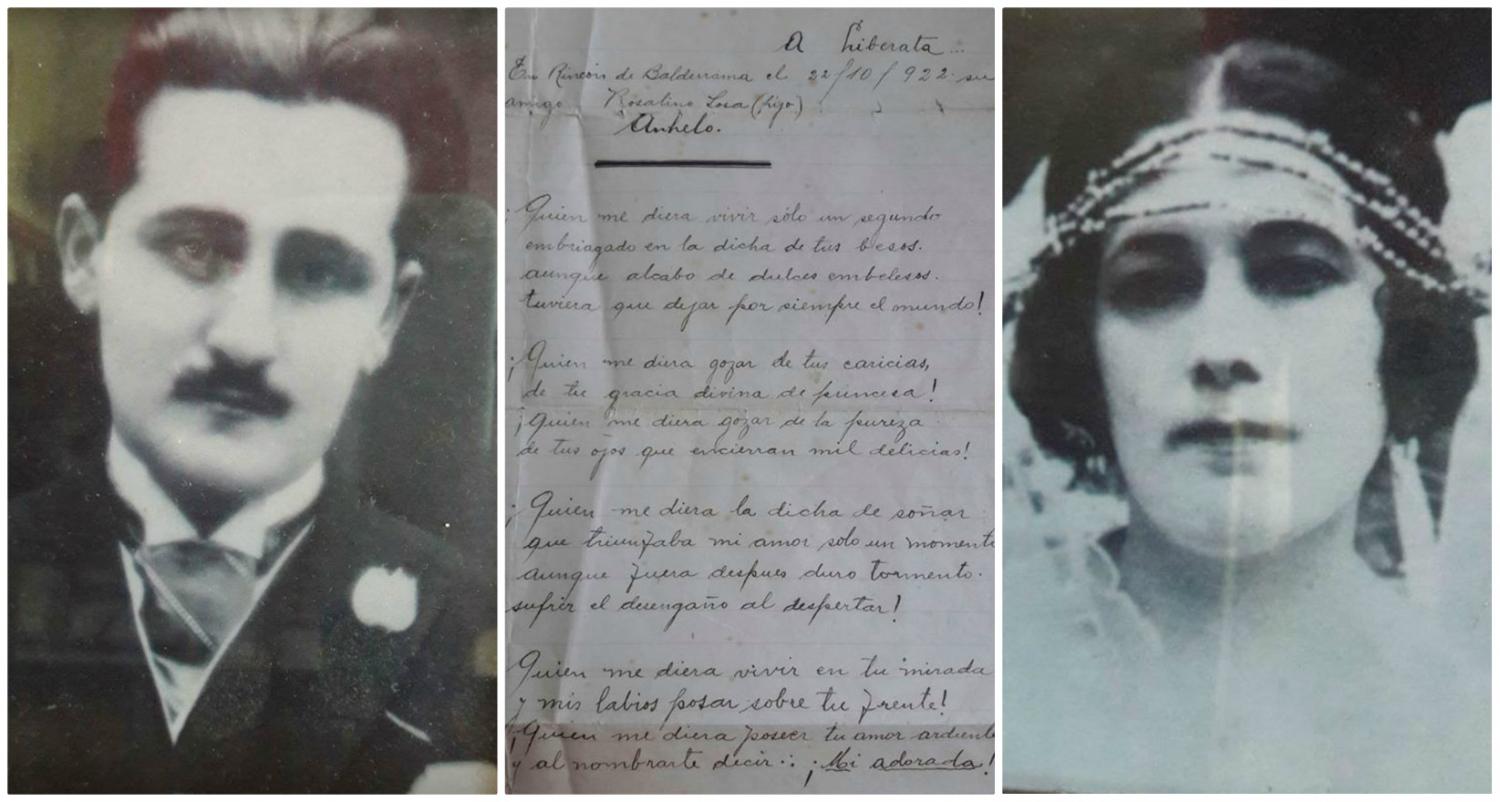 A Liberata...
En Rincón de Balderrama el 22/10/922. su
amigo Rosalino Sosa (hijo)
Anhelo.
¡Quien me diera vivir sólo un segundo
embriagado en la dicha de tus besos.
aunque alcabo de dulces embelesos.
tuviera que dejar por siempre el mundo!
¡Quien me diera gozar de tus caricias,
de tu gracia divina de princesa!
¡Quien me diera gozar de la pureza
de tus ojos que encierran mil delicias!
¡Quien me diera la dicha de soñar
que triunfaba mi amor solo un momento
aunque fuera despues duro tormento.
sufrir el desengaño al despertar!
Quien me diera vivir en tu mirada
y mis labios posar sobre tu frente!
¡Quien me diera poseer tu amor ardiente
y al nombrarte decir:. ¡Mi adorada!